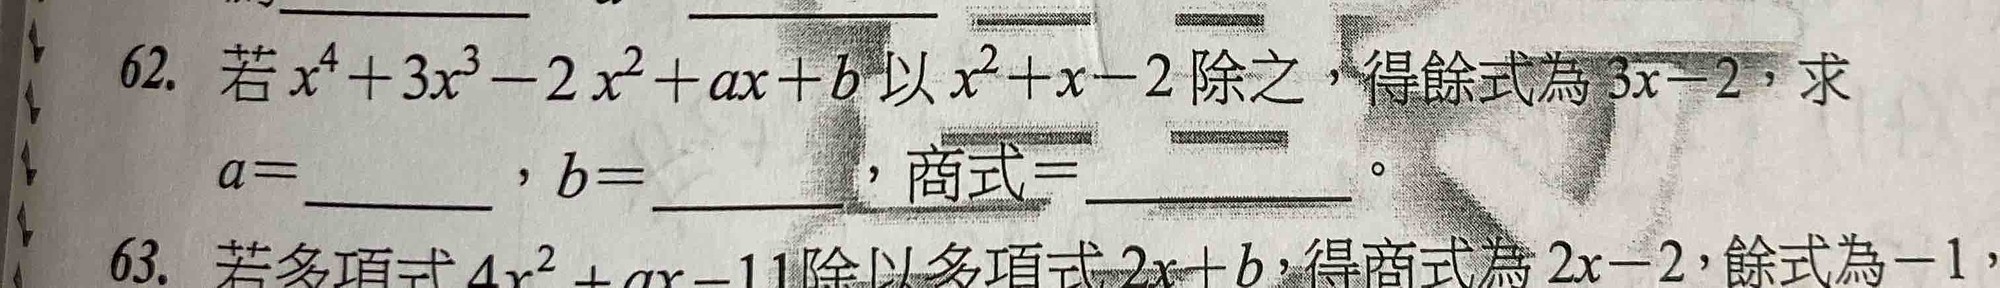 62. 若 x⁴+3x³−2x²+ax+b 以 x²+x−2 除之，得餘式為 3x−2，求
a=______，b=______，商式=________。
63. 若多項式 4x²+ax−11 除以多項式 2x+b，得商式為 2x−2，餘式為−1，